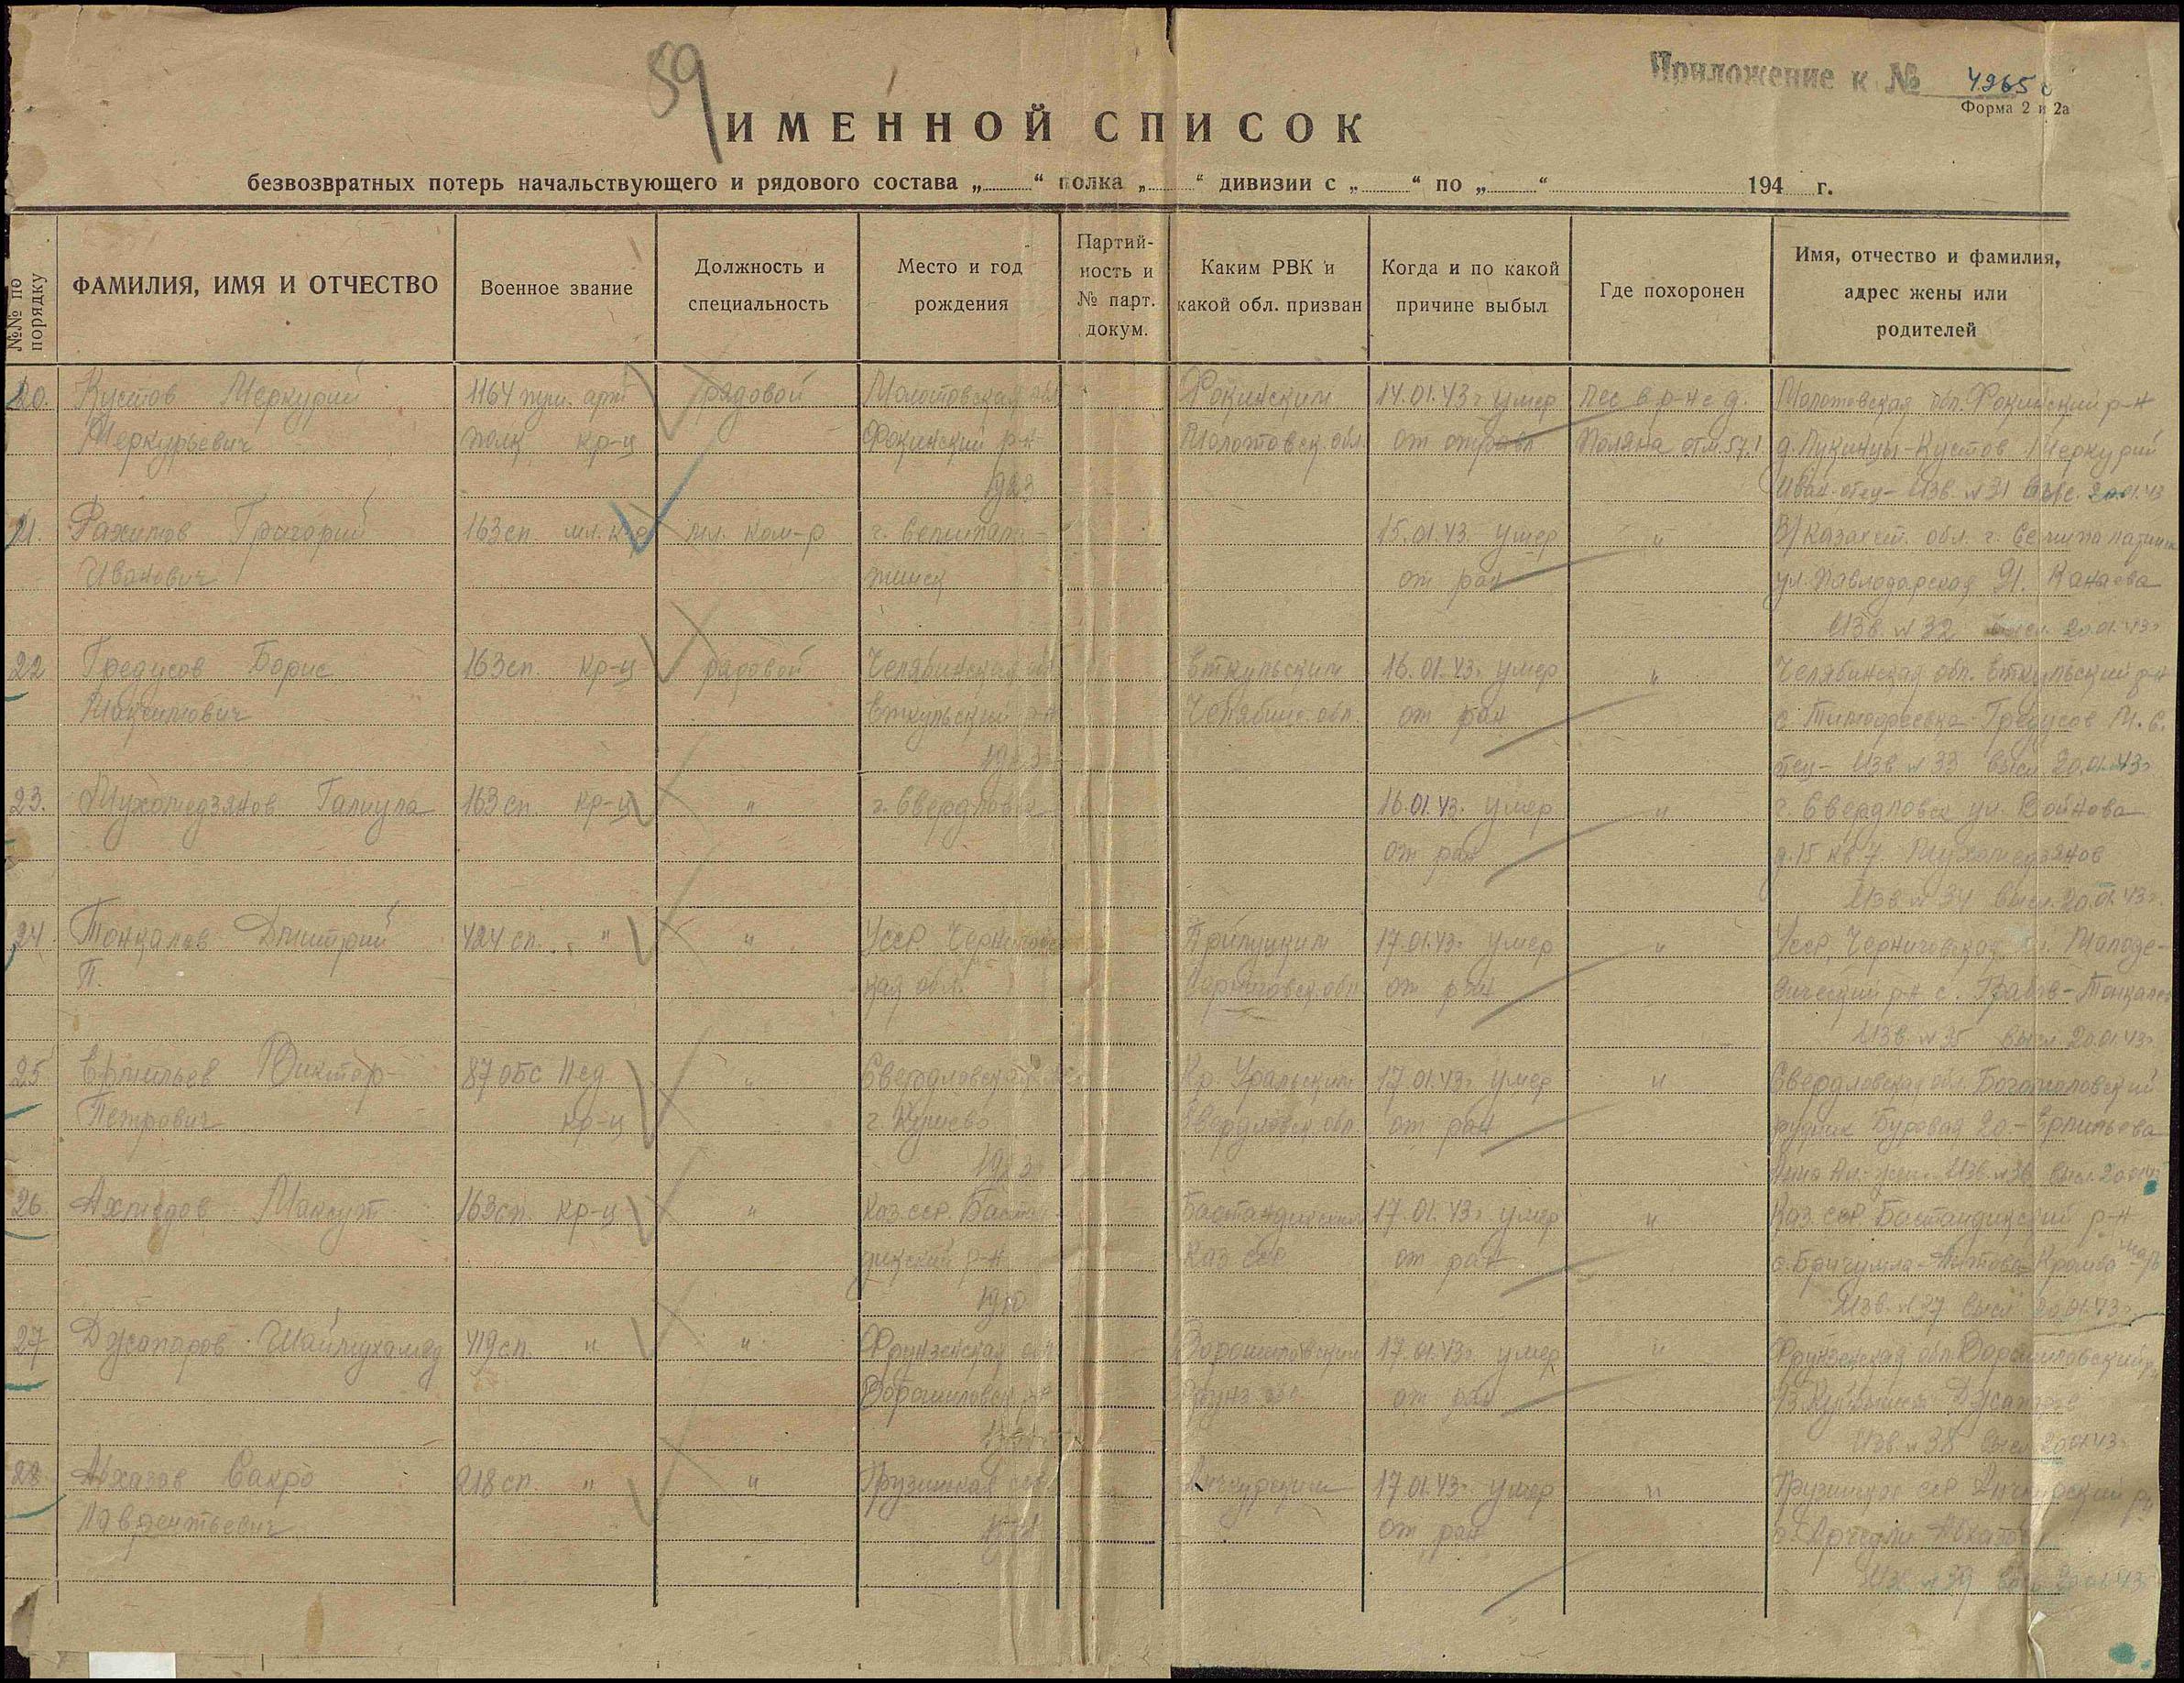 59
Приложение к № 4265 с
Форма 2 и 2а
ИМЕННОЙ СПИСОК
безвозвратных потерь начальствующего и рядового состава „ “ полка „ “ дивизии с „ “ по „ “ 194 г.
№№ по порядку
ФАМИЛИЯ, ИМЯ И ОТЧЕСТВО
Военное звание
Должность и специальность
Место и год рождения
Партийность и № парт. докум.
Каким РВК и какой обл. призван
Когда и по какой причине выбыл
Где похоронен
Имя, отчество и фамилия, адрес жены или родителей
20. Кустов Меркурий 1164 арт рядовой Молотовская обл Фокинским 14.01.43 г. умер лес в р-не д. Молотовская обл. Фокинский р-н
Меркурьевич полк кр-ц Фокинский р-н Молотовск. обл. от отравл Поляна отм. 57.1 Кустов Меркурий
1923 Иван. отец- Изв. № 31 20.01.43
21. Рахимов Григорий 163 сп мл. мл. ком-р г. Семипала- 15.01.43. умер " обл. г. Семипалатинск
Иванович тинск от ран ул. Павлодарская 91.
Изв. № 32 высл. 20.01.43 г.
22 Гредусов Борис 163 сп. кр-ц рядовой Челябинская обл Еткульским 16.01.43 г. умер " Челябинская обл. Еткульский р-н
Максимович Еткульский р-н Челябинс. обл. от ран с. Тимофеевка Гредусов М. С.
отец- Изв № 33 высл 20.01.43 г
23. Мухомедзянов Галиула 163 сп. кр-ц " г. Свердловск 16.01.43. умер " г. Свердловск ул. Войнова
от ран д. 15 кв 7 Мухомедзянов
Изв. № 34 высл. 20.01.43 г.
24. Тонкалев Дмитрий 424 сп. " " УССР. Черниговс- Прилуцким 17.01.43 г. умер " УССР, Черниговская Малоде-
П. кая обл. Черниговск. обл от ран р-н с.
Изв. № 35 высл. 20.01.43 г.
25 Ермильев Виктор 87 обс " Свердловская обл Кр. Уральским 17.01.43 г. умер " Свердловская обл. Богомоловский
Петрович кр-ц г. Кушево Свердловск. обл. от ран рудник Буровая 20.- Ермильева
Анна Изв. № 36 высл. 20.01.43
26. Ахмедов Максут 163 сп. кр-ц " Каз. ССР. Бостан- Бостандикским 17.01.43 г. умер " Каз. ССР Бостандикский р-н
дикский р-н Каз ССР от ран с. Бричмулла-
1910 Изв. № 37 высл 20.01.43 г.
27 Джапаров Шаймухамед 419 сп. " " Фрунзенская обл Ворошиловским 17.01.43 г. умер " Фрунзенская обл. Ворошиловский р-н
Ворошиловск р-н Фрунз. обл. от ран Джапаров
Изв. № 38 высл 20.01.43 г
28 Абхазов Сакро 218 сп. " " Грузинская ССР 17.01.43 г. умер " Грузинская ССР
Лаврентьевич от ран
Изв. № 39 высл 20.01.43 г